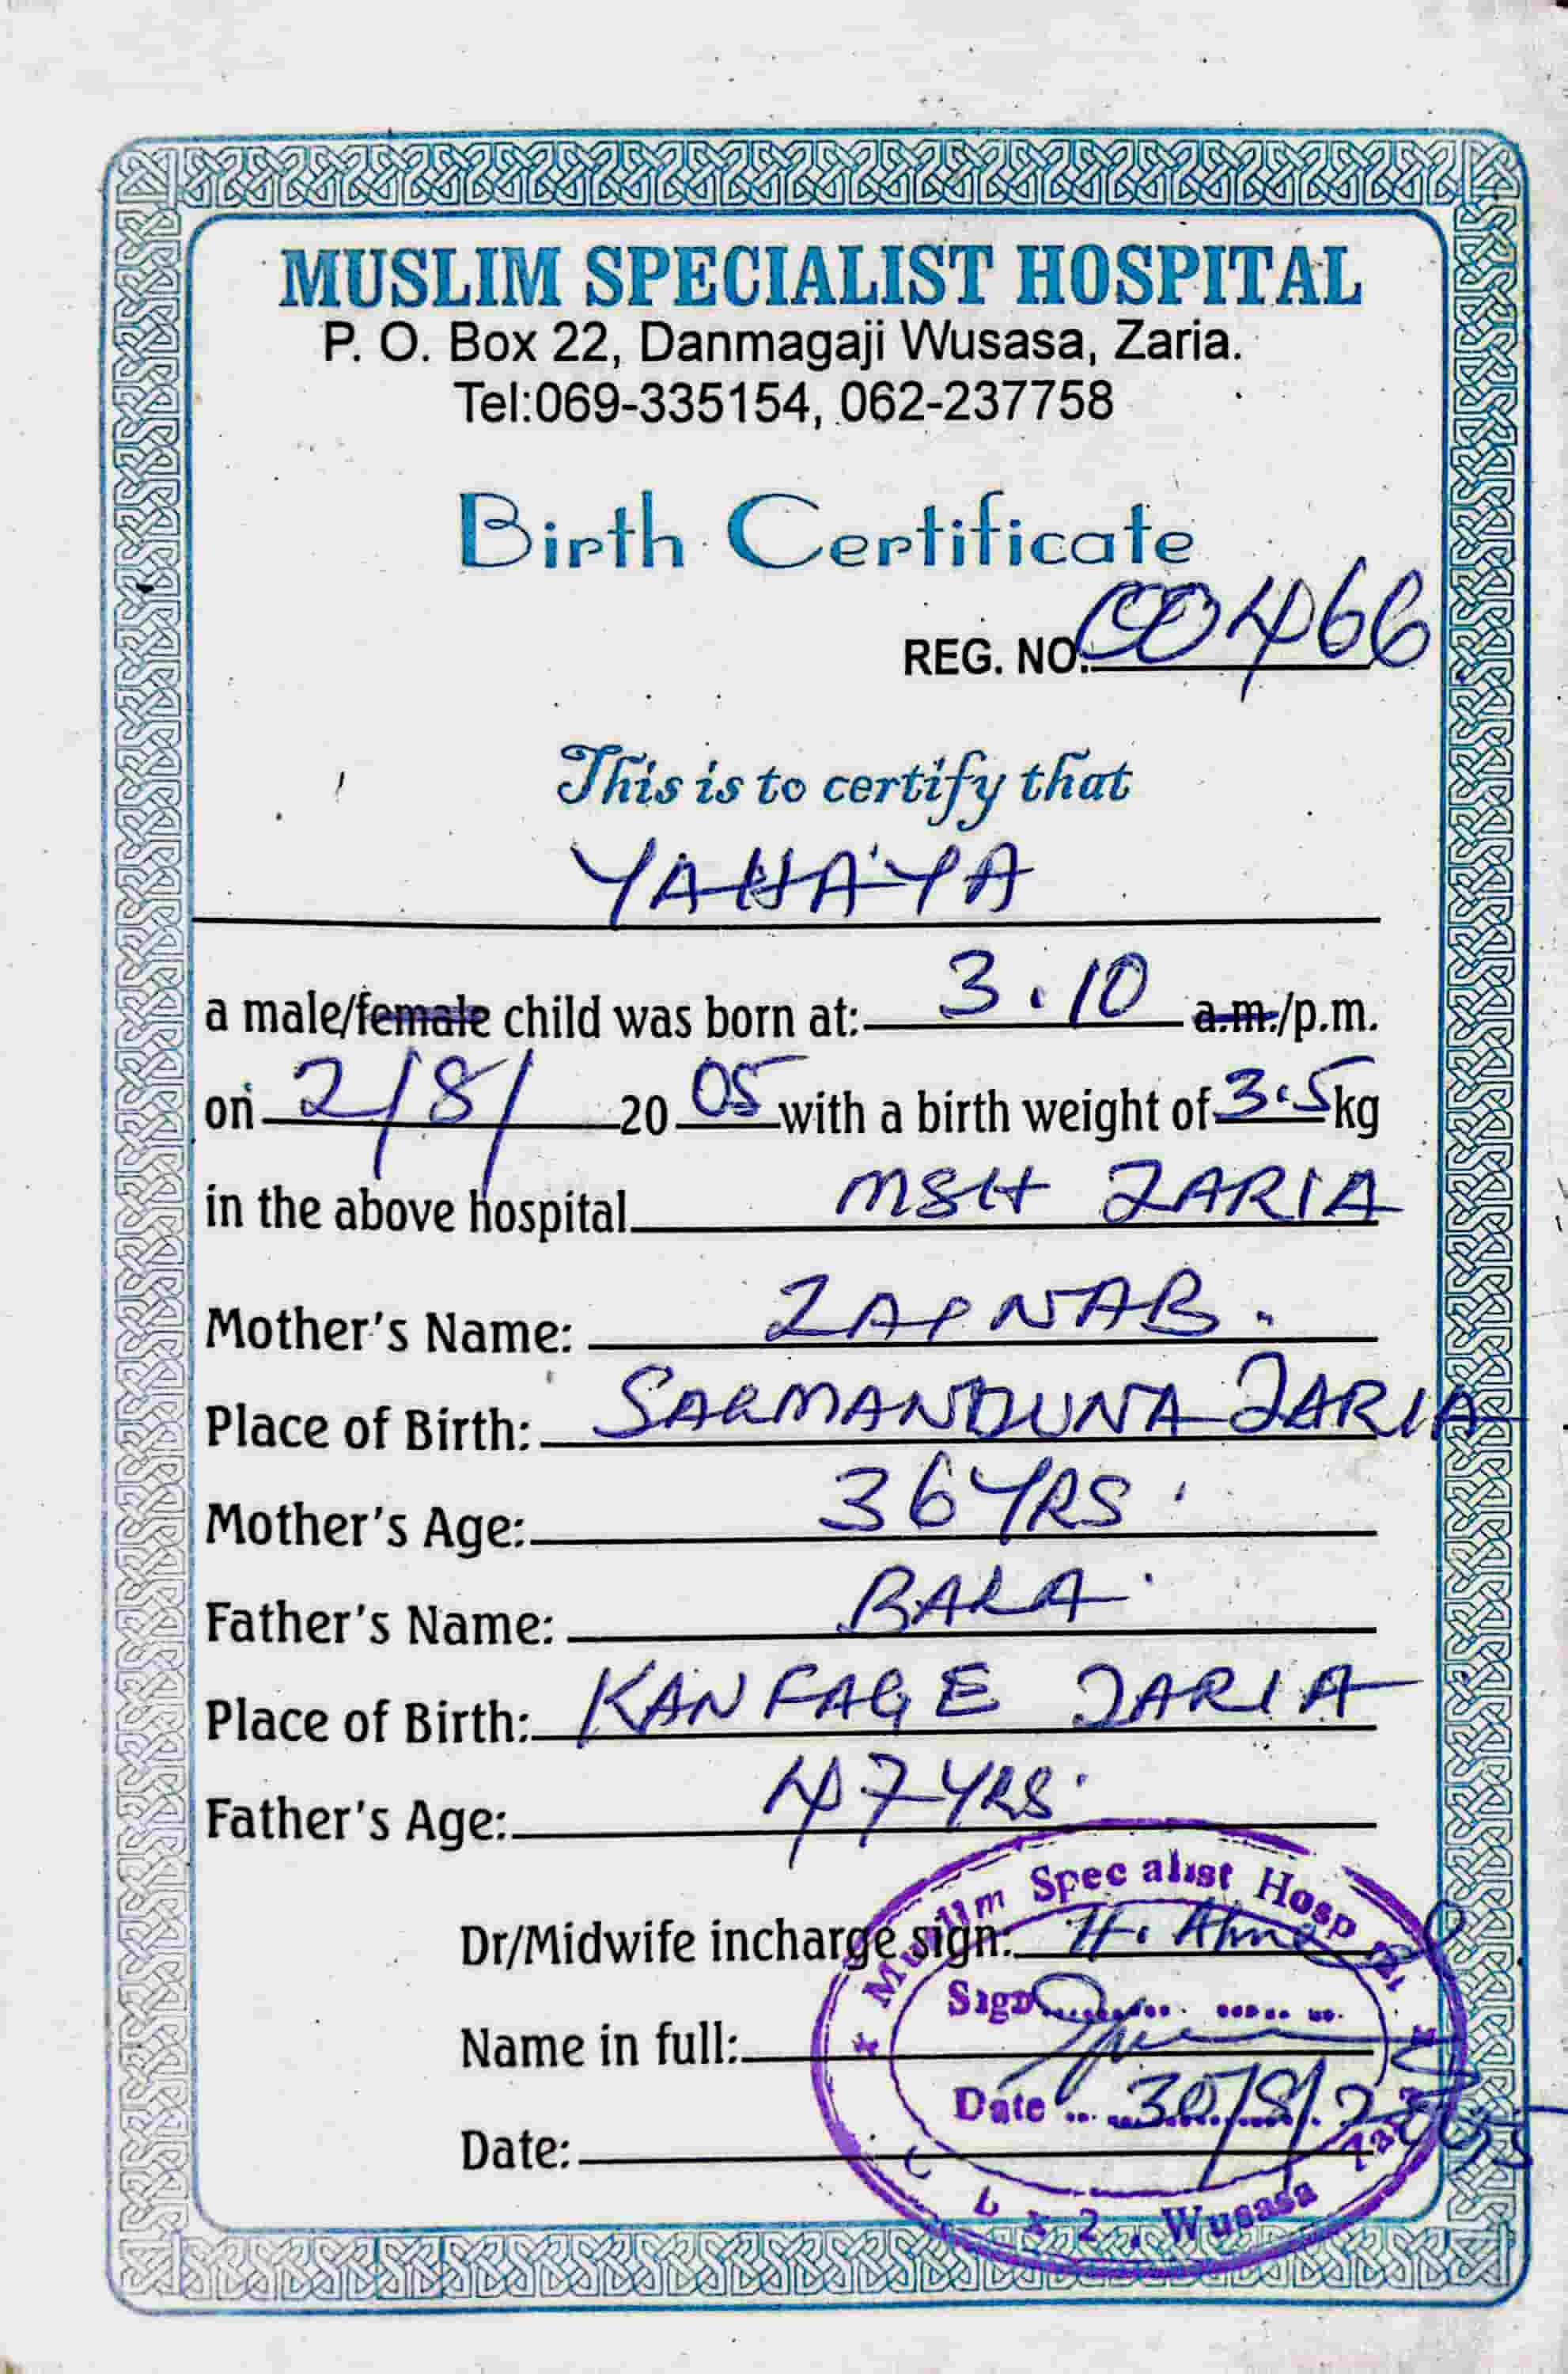 MUSLIM SPECIALIST HOSPITAL
P. O. Box 22, Danmagaji Wusasa, Zaria.
Tel:069-335154, 062-237758
Birth Certificate
REG. NO. 00466
This is to certify that
YAHAYA
a male/female child was born at: 3.10 a.m./p.m.
on 2/8/ 20 05 with a birth weight of 3.5 kg
in the above hospital MSH ZARIA
Mother's Name: ZAINAB.
Place of Birth: SARMANDUNA ZARIA
Mother's Age: 36YRS
Father's Name: BALA
Place of Birth: KANFAGE ZARIA
Father's Age: 47YRS
Muslim Specialist Hospital
Dr/Midwife incharge sign: H. Ahmed
Sign
Name in full:
Date 30/8/2005
Date:
Wusasa